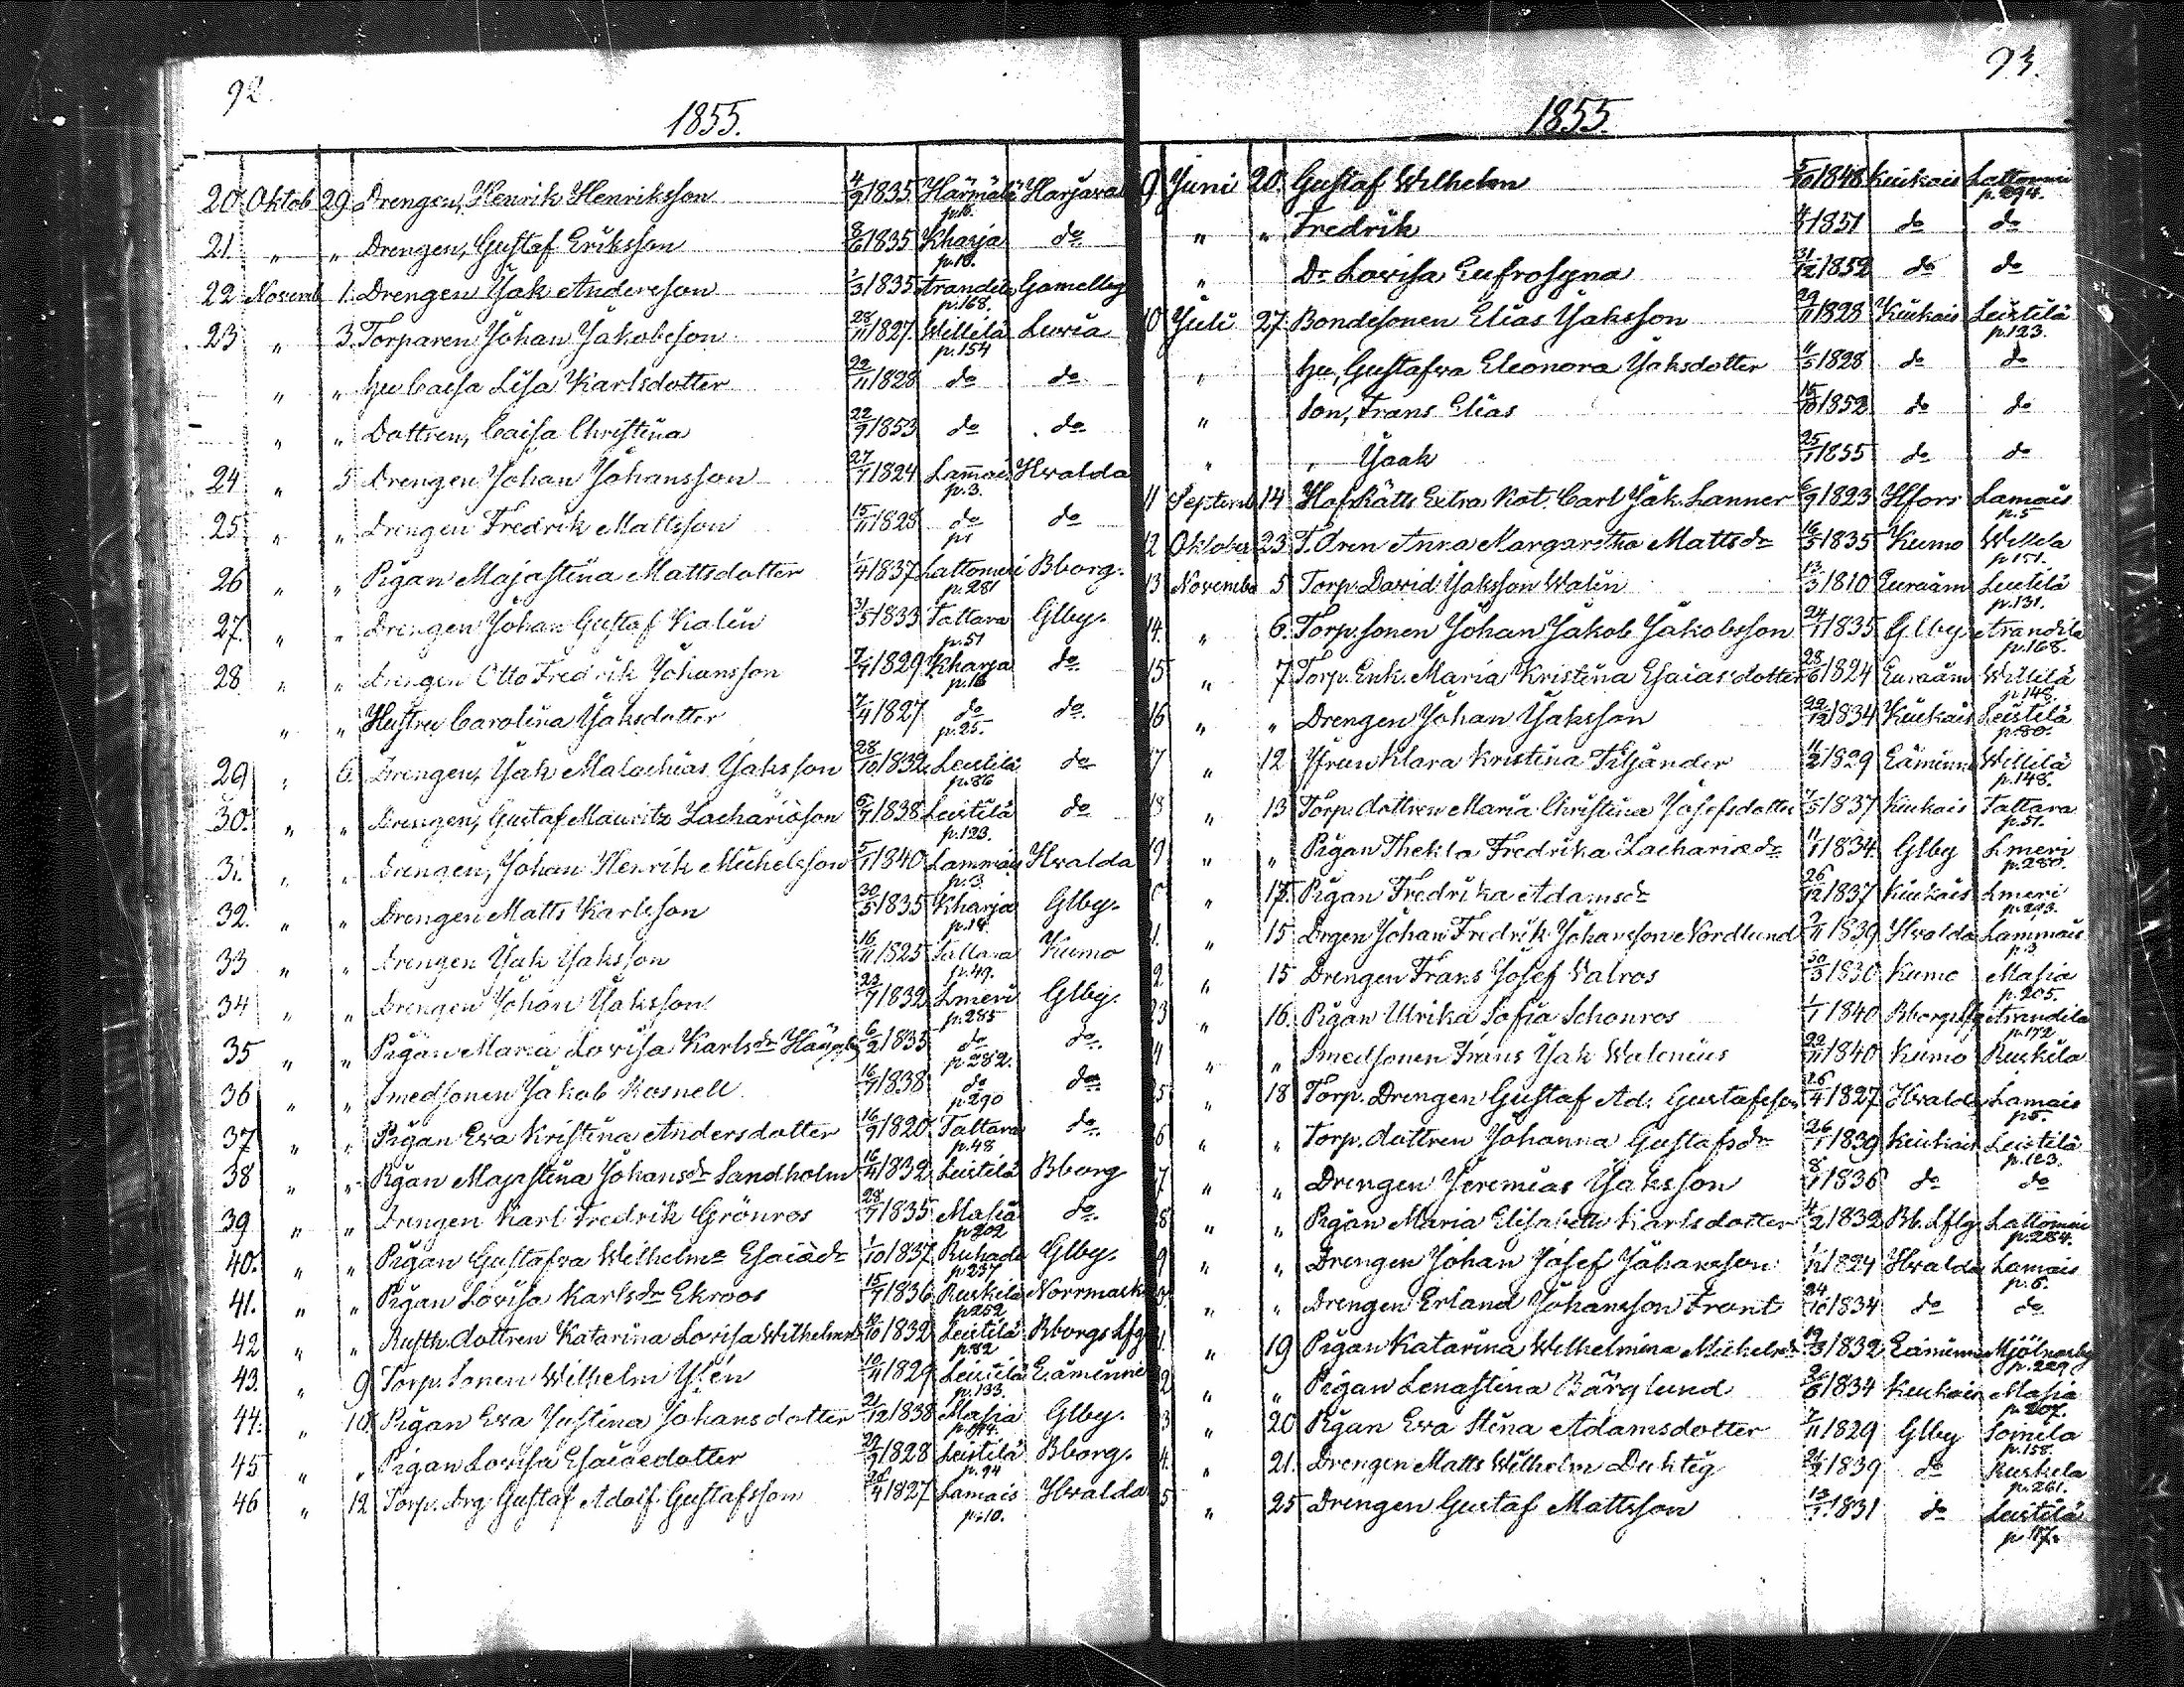 92.
1855.
20. Oktob 29. Drengen, Henrik Henriksson 4/9 1835 Härmälä p.16. Harjava
21. " " Drengen, Gustaf Eriksson 8/6 1835 Kharja p.18. do
22 Novemb 1. Drengen Jak Andersson 1/3 1835 Arandila p.168. Gamelby
23 " 3. Torparen Johan Jakobsson 28/11 1827 Willilä p.154 Luvia
" " hu Caisa Lisa Karlsdotter 22/11 1828 do do
" " Dottren, Caisa Christina 22/9 1853 do do
24 " 5 Drengen Johan Johansson 27/7 1824 Lam̄ais p.3. Hvalda
25 " " Drengen Fredrik Mattsson 15/11 1828 do do
26 " " Pigan Majastina Mattsdotter 1/4 1837 Lattomeri p.281 Bborg.
27. " " Drengen Johan Gustaf Kalén 31/5 1833 Tattara p.51 Glby.
28 " " Drengen Otto Fredrik Johansson 7/9 1829 Kharja p.16 do
" " Hustru Carolina Jaksdotter 7/4 1827 do p.25. do.
29 " 6 Drengen, Jak Malachias Jaksson 28/10 1832 Leistilä p.86 do
30. " " Drengen, Gustaf Mauritz Zachariasson 6/7 1838 Leistilä p.123. do
31. " " Drengen, Johan Henrik Michelsson 5/1 1840 Lammais p.3. Hvalda
32. " " Drengen Matts Karlsson 30/5 1835 Kharja p.18. Glby.
33 " " Drengen Jak Jaksson 16/11 1825 Tattara p.49. Kumo
34 " " Drengen Johan Jaksson 22/7 1832 Lmeri p.285 Glby.
35 " " Pigan Maria Lovisa Karlsdr 6/2 1835 do p.282. do.
36 " " Smedsonen Jakob Rosnell 16/7 1838 do p.290 do
37 " " Pigan Eva Kristina Andersdotter 16/9 1820 Tattara p.48 do.
38 " " Pigan Majastina Johansdr Sandholm 16/4 1832 Leistilä Bborg
39 " " Drengen Karl Fredrik Grönros 28/7 1835 Masia p.202 do.
40. " " Pigan Gustafva Wilhelma Esaiædr 1/10 1837 p.237 Glby.
41. " " Pigan Lovisa Karlsdr Ekroos 15/7 1836 Ruskila p.252 Norrmark
42 " " Rusth. dottren Katarina Lovisa Wilhelmsd 1832 Leistilä p.82 Bborgs Lfg
43. " 9 Torp. Sonen Wilhelm Ylén 1829 Leistilä p.133. Eäminne
44. " 10. Pigan Eva Justina Johansdotter 21/12 1838 Masia Glby.
45 " " Pigan Lovisa Esaiaedotter 29/9 1828 Leistilä p.94 Bborg.
46 " 12 Torp. drg Gustaf Adolf Gustafsson 26/4 1827 Lamais p.10. Hvalda
93.
1855.
9 Juni 20. Gustaf Wilhelm 5/10 1848 Kiukais Lattomeri p.294.
" " Fredrik 1851 do do
" Dr Lovisa Eufrosyna 31/12 1852 do do
10 Juli 27. Bondesonen Elias Jaksson 29/11 1828 Kiukais Leistilä p.123.
" hu, Gustafva Eleonora Jaksdotter 1828 do do
" Son, Frans Elias 15/10 1852 do do
" " Jaak 25/7 1855 do do
11 Septemb 14 Hofrätts Extra Not. Carl Jak. Lanner 6/9 1823 Hfors Lamais p.5
12 Oktober 23 T. dren Anna Margaretha Mattsdr 16/5 1835 Kumo Willila p.151.
13 Novembe 5 Torp. David Jaksson Walin 13/3 1810 Euraåm Leistilä p.131.
14. " 6. Torp. sonen Johan Jakob Jakobsson 24/7 1835 Glby Arandila p.168.
15 " 7 Torp. Enk. Maria Kristina Esaiasdotter 28/6 1824 Euraåm Willilä p.148.
16 " " Drengen Johan Jaksson 22/12 1834 Kiukais Leistilä p.80.
17 " 12 Jfrun Klara Kristina Filjander 1829 Eäminne Willilä p.148.
18 " 13 Torp. dottren Maria Christina Josefsdotter 1837 Kiukais Tattara p.51.
19 " " Pigan Thekla Fredrika Zachariædr 11/7 1834 Glby Lmeri p.280.
" 17. Pigan Fredrika Adamsdr 26/12 1837 Kiukais Lmeri p.293.
1. " 15 Drgen Johan Fredrik Johansson Nordlund 9/11 1839 Hvalda Lammais p.3
2. " 15 Drengen Frans Josef Valros 30/3 1830 Kumo Masia p.205.
23 " 16. Pigan Ulrika Sofia Schonros 1/1 1840 Bborgs Lfg Arandila p.172
4 " " Smedsonen Frans Jak Walenius 22/11 1840 Kumo Ruskila
5 " 18 Torp. Drengen Gustaf Ad. Gustafsson 26/4 1827 Hvalda Lamais p.5.
6 " " Torp. dottren Johanna Gustafsdr 26/1 1839 Kiukais Leistilä p.123.
7 " " Drengen Jeremias Jaksson 8/1 1836 do do
8 " " Pigan Maria Elisabeth Karlsdotter 4/2 1832 Bb. Lflg Lattomeri p.284.
9 " " Drengen Johan Josef Johansson 1824 Hvalda Lamais p.6.
" " Drengen Erland Johansson Front 24/10 1834 do do
1. " 19 Pigan Katarina Wilhelmina Michelsdr 19/3 1832 Eäminne Mjölnarby p.229
2 " " Pigan Lenastina Bärglund 1834 Kiukais Masia p.207.
3 " 20 Pigan Eva Stina Adamsdotter 7/11 1829 Glby Soinila p.158.
4. " 21. Drengen Matts Wilhelm Duktig 1839 do Ruskela p.261.
5 " 25 Drengen Gustaf Mattsson 1831 do Leistilä p.117.